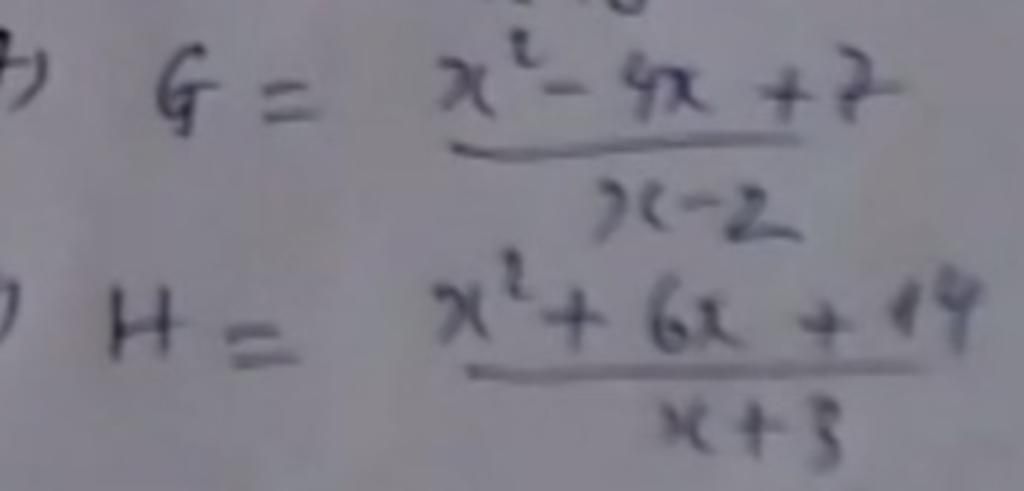 ) G = x² - 4x + 7
x - 2
) H = x² + 6x + 14
x + 3